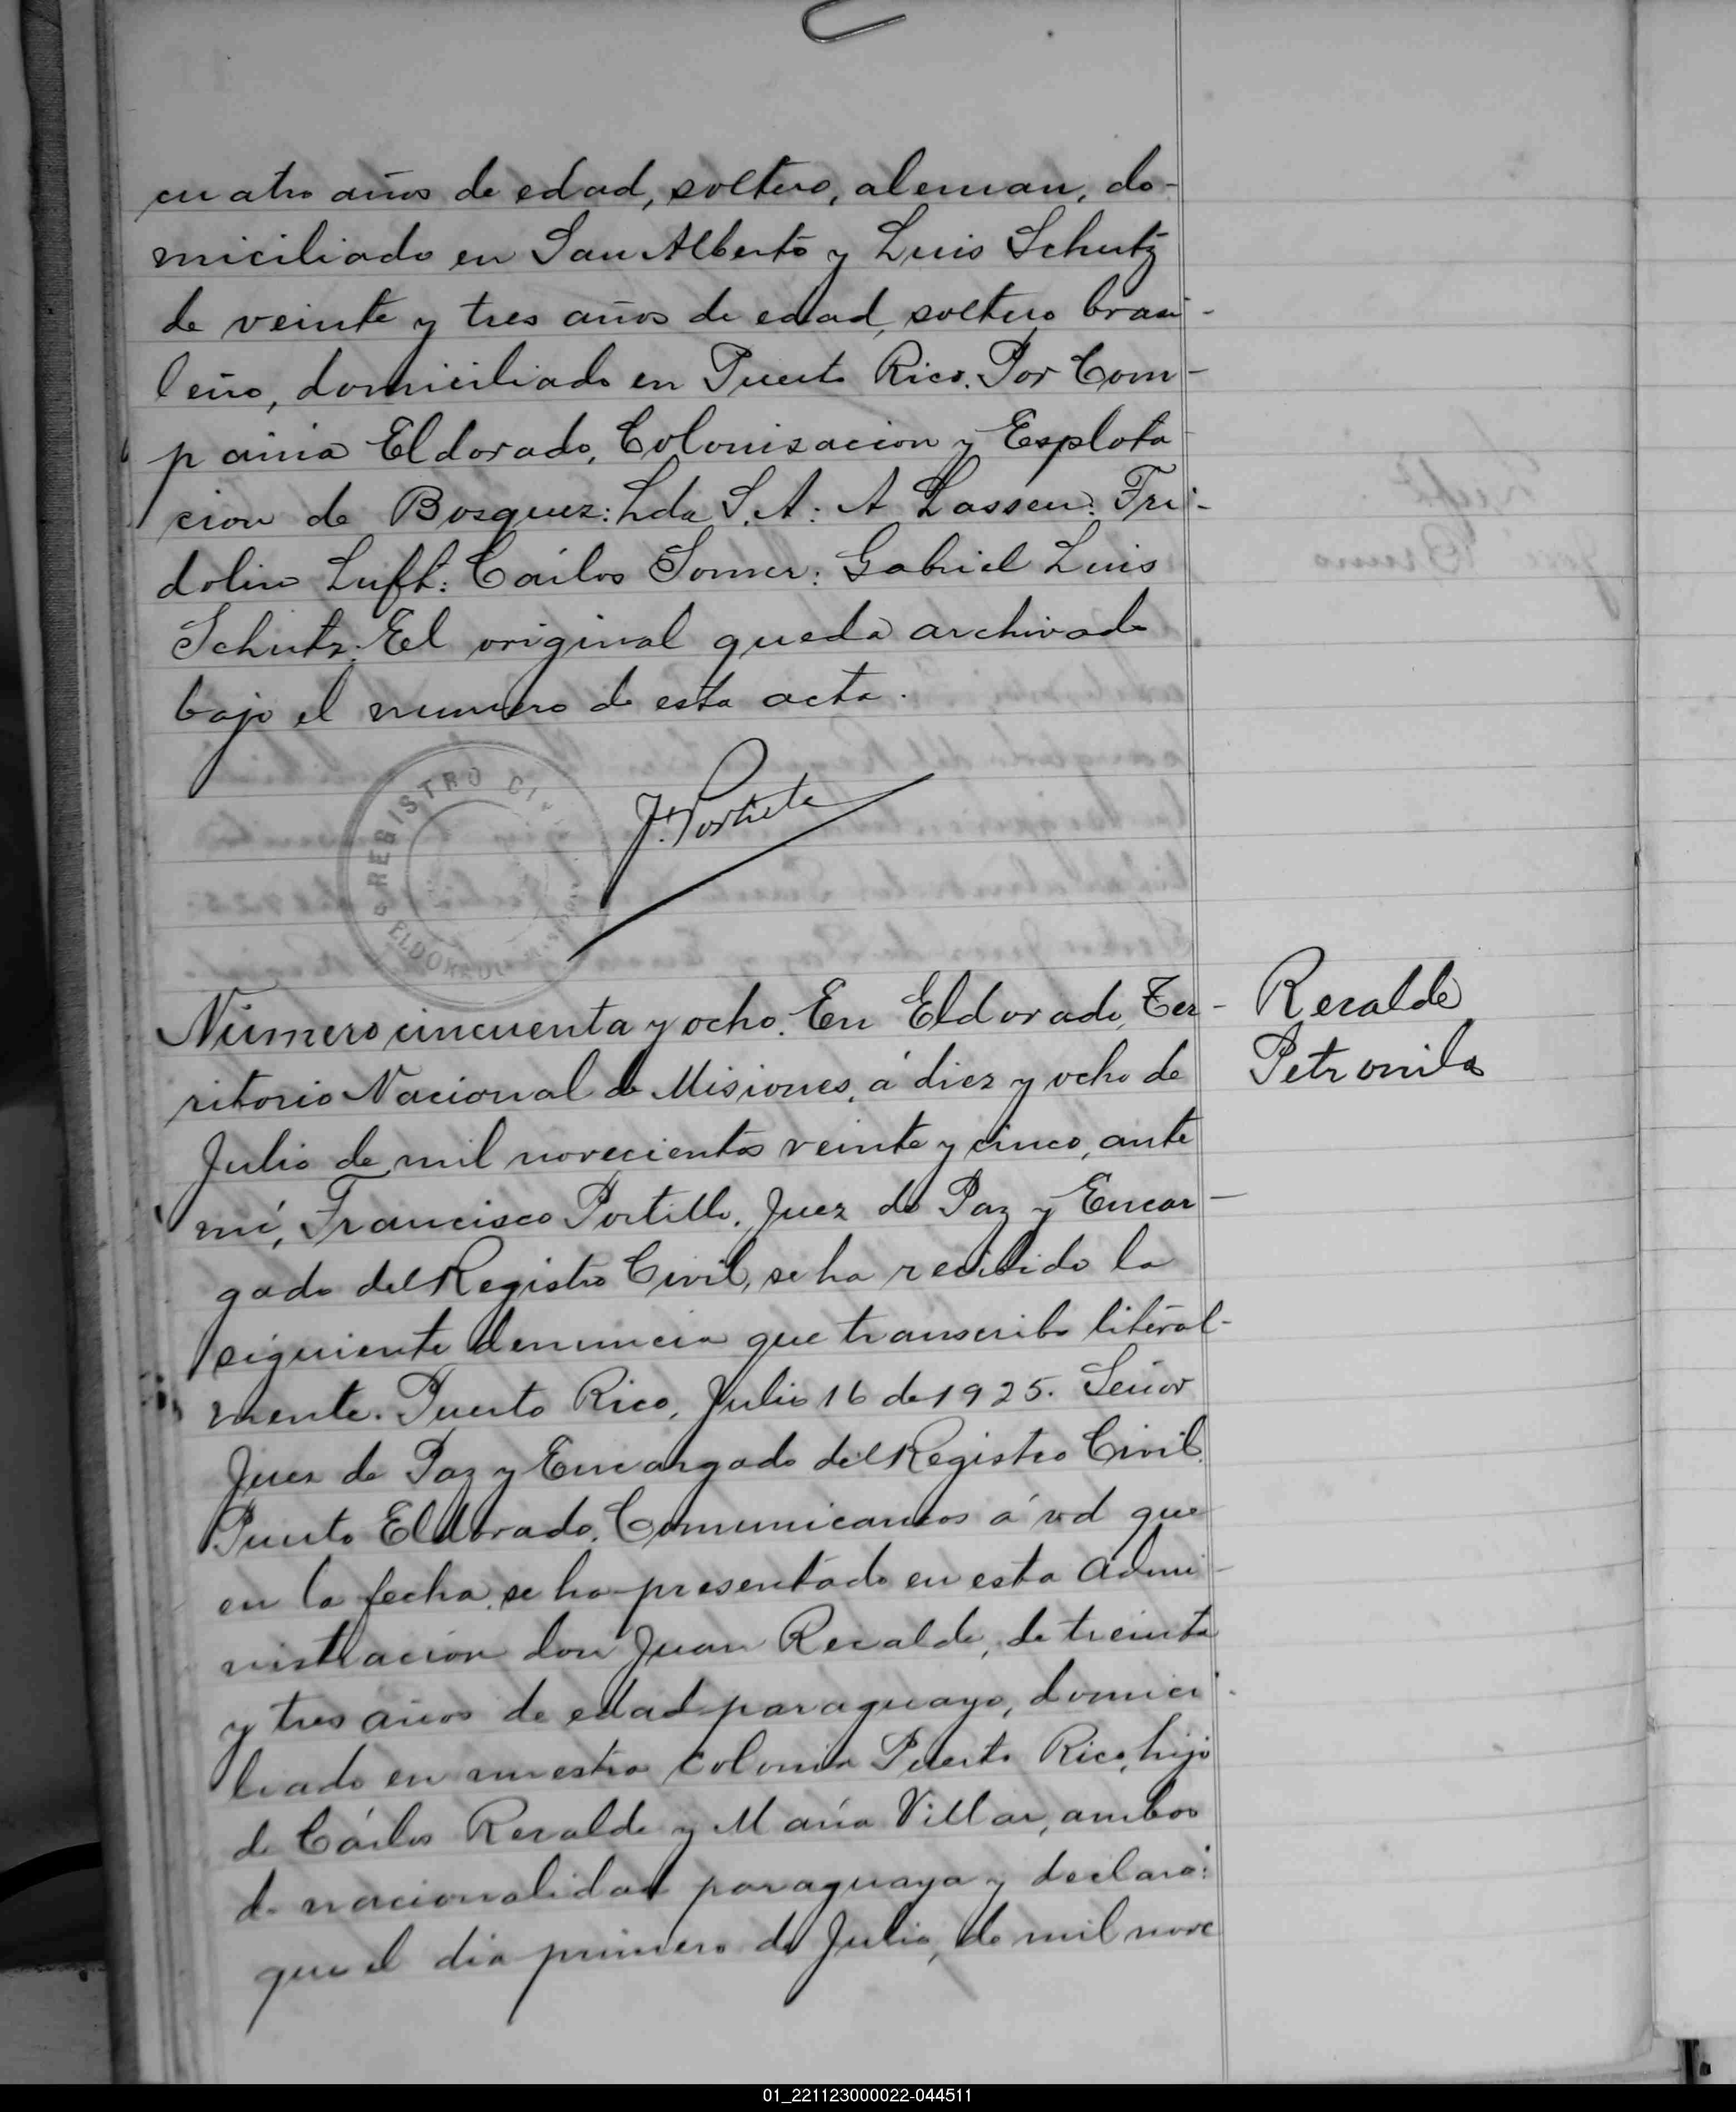 cuatro años de edad, soltero, aleman, do-
miciliado en San Alberto y Luis Schutz
de veinte y tres años de edad, soltero brasi-
leño, domiciliado en Puerto Rico. Por Com-
pañia Eldorado, Colonisacion y Esplota
cion de Bosques: Lda S.A: A Lassen: Fri-
dolin Luft: Cárlos Somer: Gabriel Luis
Schutz. El original queda archivado
bajo el numero de esta acta.
REGISTRO CIVIL
ELDORADO
Número cincuenta y ocho. En Eldorado, Ter-
ritorio Nacional de Misiones, á diez y ocho de
Julio de mil novecientos veinte y cinco, ante
mí, Francisco Portillo, Juez de Paz y Encar-
gado del Registro Civil, se ha recibido la
siguiente denuncia que transcribo literal-
mente. Puerto Rico, Julio 16 de 1925. Señor
Juez de Paz y Encargado del Registro Civil.
Puerto Eldorado. Comunicamos á vd que
en la fecha se ha presentado en esta Admi-
nistracion don Juan Recalde, de treinta
y tres años de edad paraguayo, domici-
liado en nuestra colonia Puerto Rico, hijo
de Cárlos Recalde y María Villar, ambos
de nacionalidad paraguaya y declaró:
que el dia primero de Julio, de mil nove
Recalde
Petronila
01_221123000022-044511